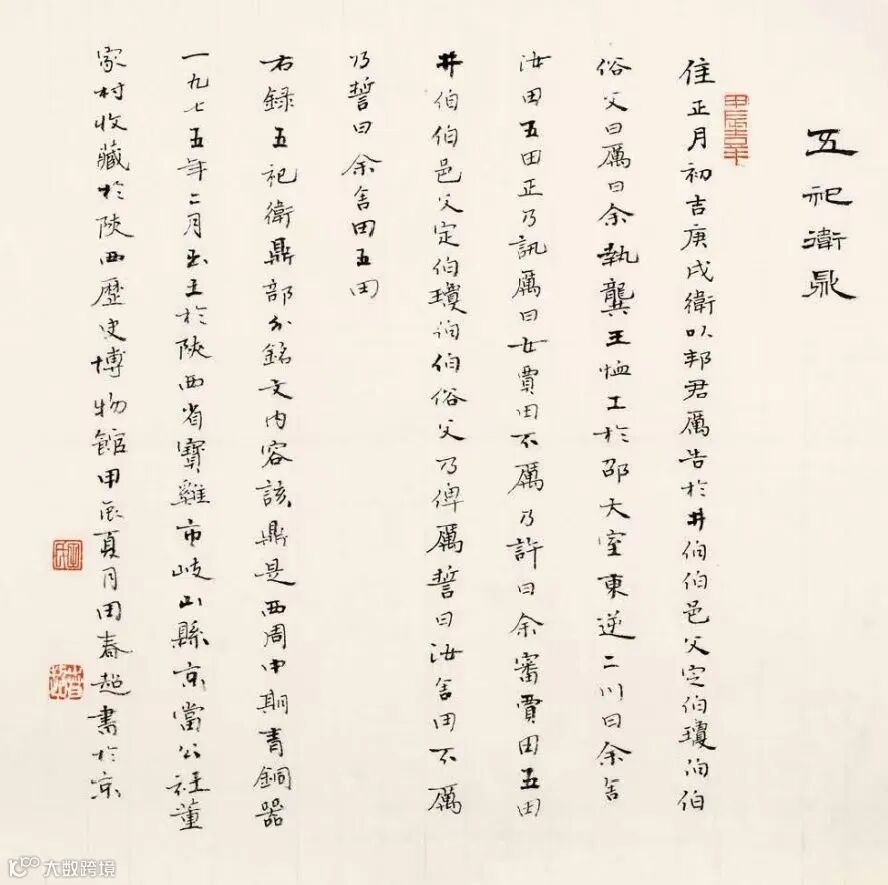 五祀衛鼎
隹正月初吉庚戌衛以邦君厲告於井伯伯邑父定伯瓊伯伯
俗父曰厲曰余執龔王恤工於邵大室東逆二川曰余舍
汝田五田正乃訊厲曰女賈田不厲乃許曰余審賈田五田
井伯伯邑父定伯瓊伯伯俗父乃俾厲誓曰汝舍田不厲
乃誓曰余舍田五田
右録五祀衛鼎部分銘文内容該鼎是西周中期青銅器
一九七五年二月出土於陝西省寶雞市岐山縣京當公社董
家村收藏於陝西歷史博物館甲辰夏月田春超書於京
大数跨境